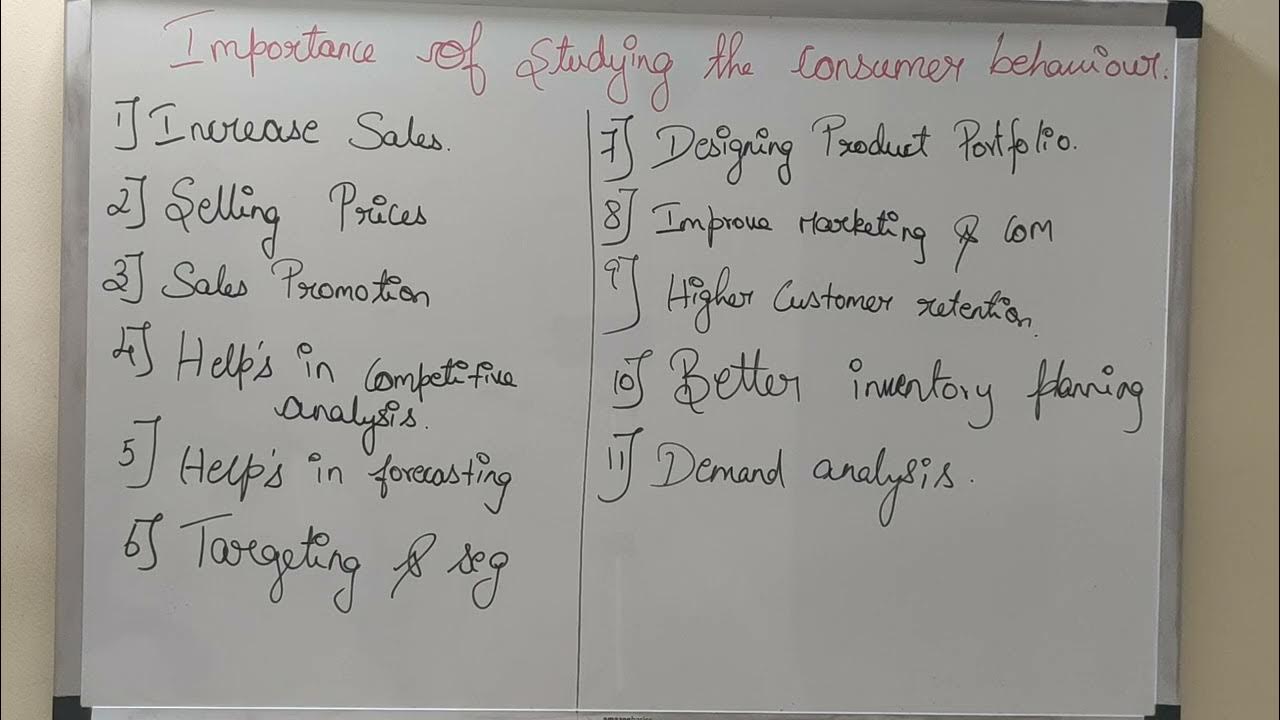 Importance of Studying the consumer behaviour.
1] Increase Sales.
2] Selling Prices
3] Sales Promotion
4] Help's in Competitive
analysis.
5] Help's in forecasting
6] Targeting & seg
7] Designing Product Portfolio.
8] Improve Marketing & com
9] Higher Customer retention.
10] Better inventory planning
11] Demand analysis.